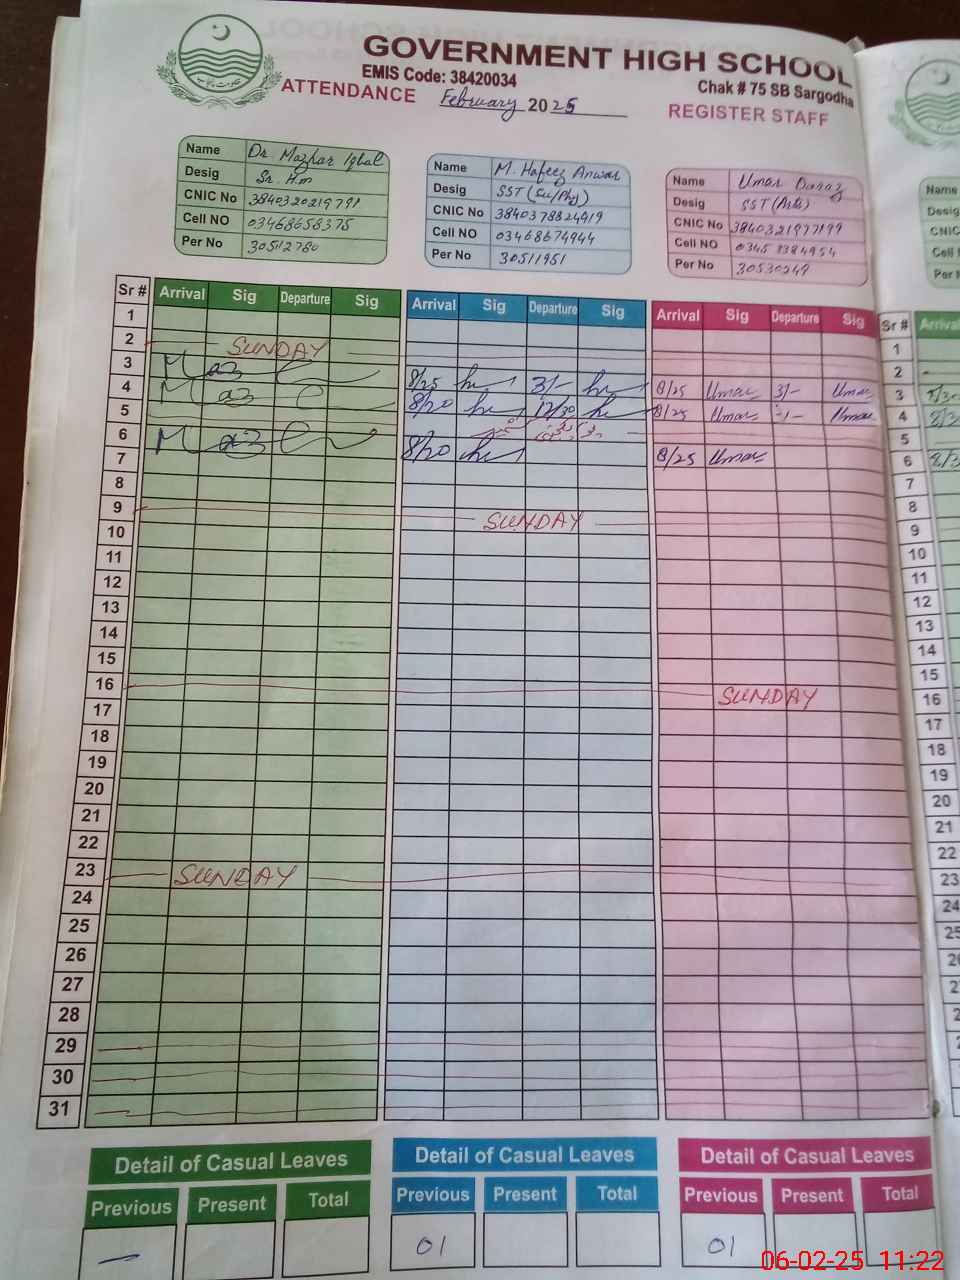 GOVERNMENT HIGH SCHOOL
EMIS Code: 38420034
Chak # 75 SB Sargodha
ATTENDANCE February 2025 REGISTER STAFF
Name Dr. Mazhar Iqbal
Desig Sr. H.m
CNIC No 3840320219791
Cell NO 03468658375
Per No 30512780
Name M. Hafeez Anwar
Desig SST (Sci/Phy)
CNIC No 3840378824919
Cell NO 03468674944
Per No 30511951
Name Umar Daraz
Desig SST (Arts)
CNIC No 3840321977199
Cell NO 0345 8384954
Per No 30530249
Name
Desig
CNIC
Cell
Per
Sr # Arrival Sig Departure Sig Arrival Sig Departure Sig Arrival Sig Departure Sig Sr # Arrival
1 1
2 SUNDAY 2
3 8/25 3/- 8/25 Umar 3/- Umar 3
4 8/20 12/30 8/25 Umar Umar 4
5 5
6 8/20 8/25 Umar 6
7 7
8 8
9 SUNDAY 9
10 10
11 11
12 12
13 13
14 14
15 15
16 SUNDAY 16
17 17
18 18
19 19
20 20
21 21
22 22
23 SUNDAY 23
24 24
25 25
26
27
28
29
30
31
Detail of Casual Leaves Detail of Casual Leaves Detail of Casual Leaves
Previous Present Total Previous Present Total Previous Present Total
— 01 01
06-02-25 11:22